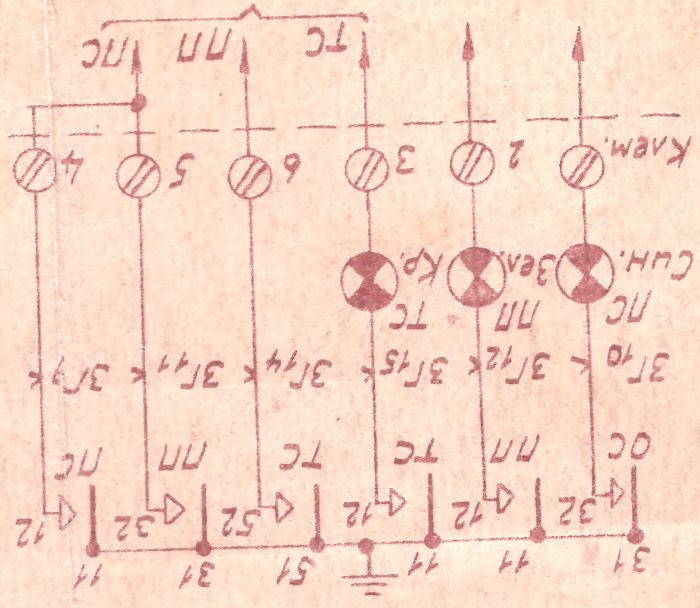 31 11 11 51 31 11
32 12 12 52 32 12
ОС ПП ТС ТС ПП ПС
3Г10 3Г12 3Г15 3Г14 3Г11 3Г9
ПС ПП ТС
Син. Зел. Кр.
Клем. 2 3 6 5 4
ТС ПП ПС